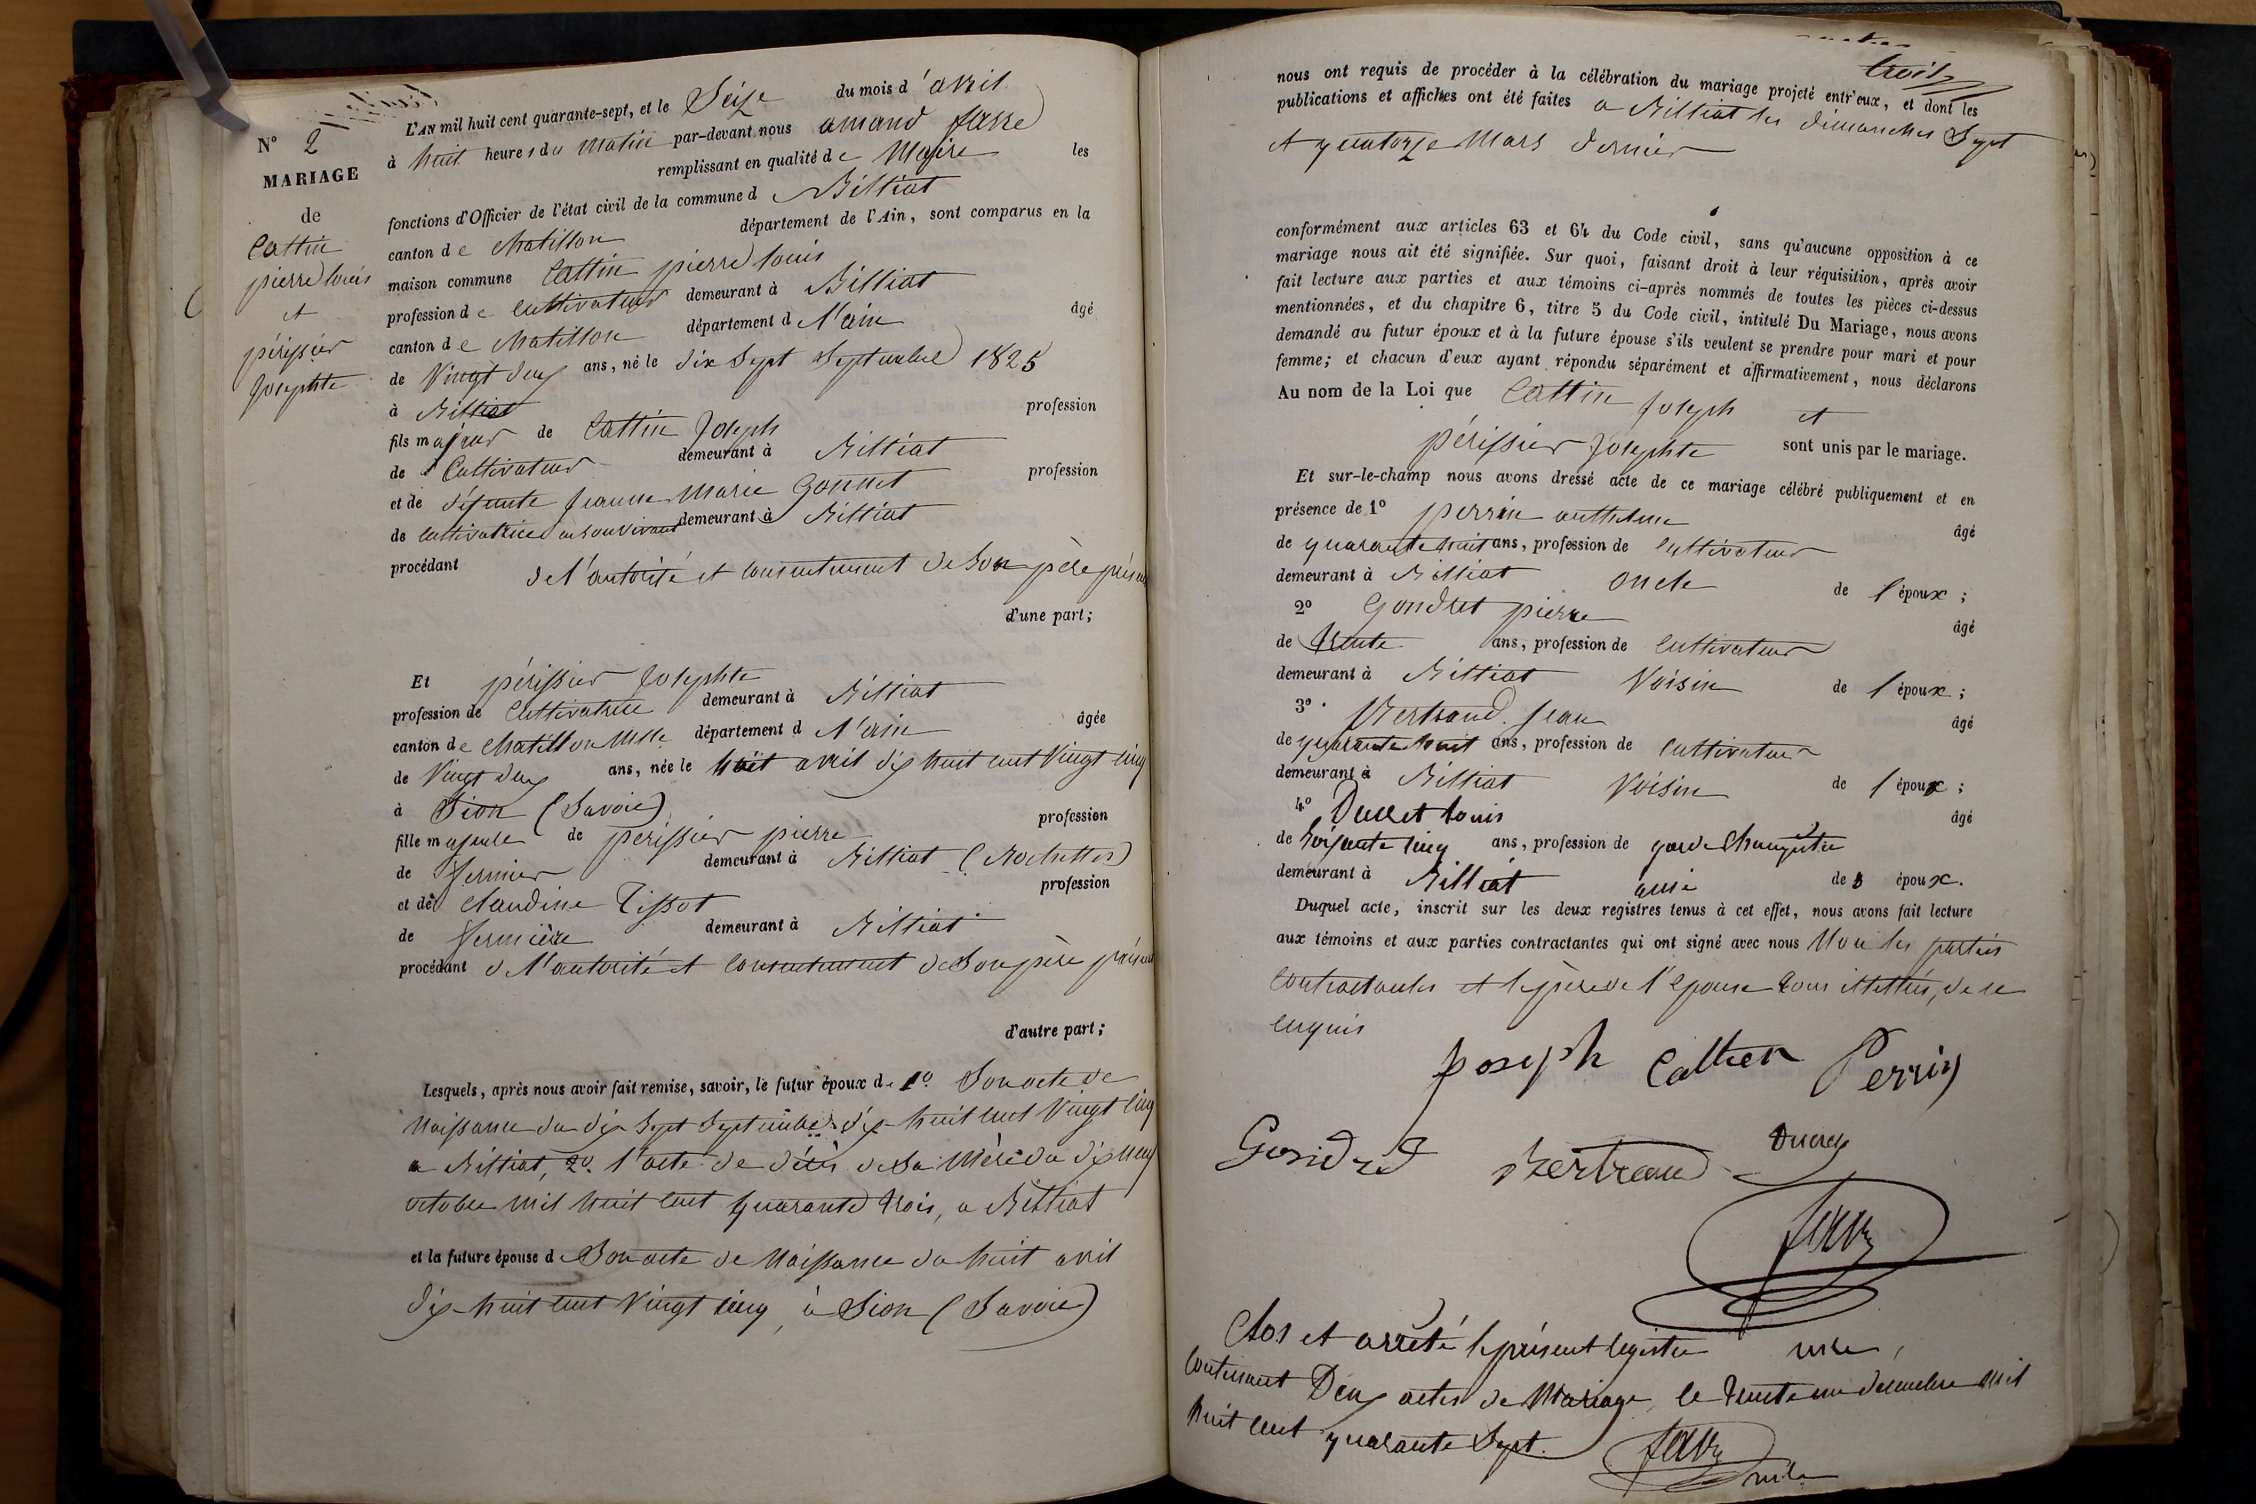 N° 2
MARIAGE
de
Cattin
pierre louis
et
périssier
Josephte
L'AN mil huit cent quarante-sept, et le Seize du mois d'avril
à huit heures du matin par-devant nous amand favre
remplissant en qualité de Maire les
fonctions d'Officier de l'état civil de la commune d Billiat
canton de chatillon département de l'Ain, sont comparus en la
maison commune Cattin pierre louis
profession de Cultivateur demeurant à Billiat
canton de chatillon département d l'ain âgé
de Vingt deux ans, né le dix Sept Septembre 1825
à Billiat
fils majeur de Cattin Joseph profession
de Cultivateur demeurant à Billiat
et de défunte Jeanne Marie Gonnet profession
de Cultivatrice en son vivant demeurant à Billiat
procédant de l'autorité et consentement de Son père présent
d'une part;
Et périssier Josephte
profession de Cultivatrice demeurant à Billiat
canton de chatillon Mlle département d l'ain âgée
de Vingt deux ans, née le huit avril dix huit cent Vingt cinq
à Sion (Savoie)
fille majeure de périssier pierre profession
de fermier demeurant à Billiat (Rochettes)
et de claudine Tissot profession
de fermière demeurant à Billiat
procédant de l'autorité et consentement de Son père présent
d'autre part;
Lesquels, après nous avoir fait remise, savoir, le futur époux de 1° Son acte de
Naissance du dix Sept Septembre dix huit cent Vingt cinq
a Billiat, 2° l'acte de décès de Sa Mère du dix neuf
octobre mil huit cent quarante trois, a Billiat
et la future épouse de Son acte de Naissance du huit avril
dix-huit cent Vingt cinq, à Sion (Savoie)
trois
nous ont requis de procéder à la célébration du mariage projeté entr'eux, et dont les
publications et affiches ont été faites a Billiat les dimanches Sept
et quatorze Mars dernier
conformément aux articles 63 et 64 du Code civil, sans qu'aucune opposition à ce
mariage nous ait été signifiée. Sur quoi, faisant droit à leur réquisition, après avoir
fait lecture aux parties et aux témoins ci-après nommés de toutes les pièces ci-dessus
mentionnées, et du chapitre 6, titre 5 du Code civil, intitulé Du Mariage, nous avons
demandé au futur époux et à la future épouse s'ils veulent se prendre pour mari et pour
femme; et chacun d'eux ayant répondu séparément et affirmativement, nous déclarons
Au nom de la Loi que Cattin Joseph et
périssier Josephte sont unis par le mariage.
Et sur-le-champ nous avons dressé acte de ce mariage célébré publiquement et en
présence de 1° perrin anthelme âgé
de quarante huit ans, profession de Cultivateur
demeurant à Billiat oncle de l'époux;
2° Gondret pierre âgé
de trente ans, profession de Cultivateur
demeurant à Billiat Voisin de l'époux;
3° Bertrand Jean âgé
de quarante huit ans, profession de Cultivateur
demeurant à Billiat Voisin de l'époux;
4° Ducret louis âgé
de Soixante cinq ans, profession de garde champêtre
demeurant à Billiat ami des époux.
Duquel acte, inscrit sur les deux registres tenus à cet effet, nous avons fait lecture
aux témoins et aux parties contractantes qui ont signé avec nous Non les parties
contractantes et le père de l'épouse tous illettrés, de ce
enquis
Joseph Cattien Perrin
Gondred Bertrand Ducret
favre
Clos et arrêté le présent registre
contenant Deux actes de Mariage, le trente un decembre mil
huit cent quarante Sept.
favre